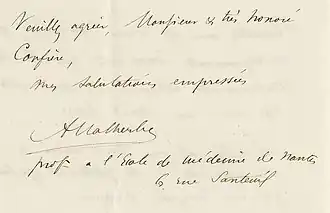 Veuillez agréer, Monsieur & très honoré
Confrère,
mes salutations empressées
AMalherbe
prof. a l'Ecole de médecine de Nantes
6, rue Santeuil